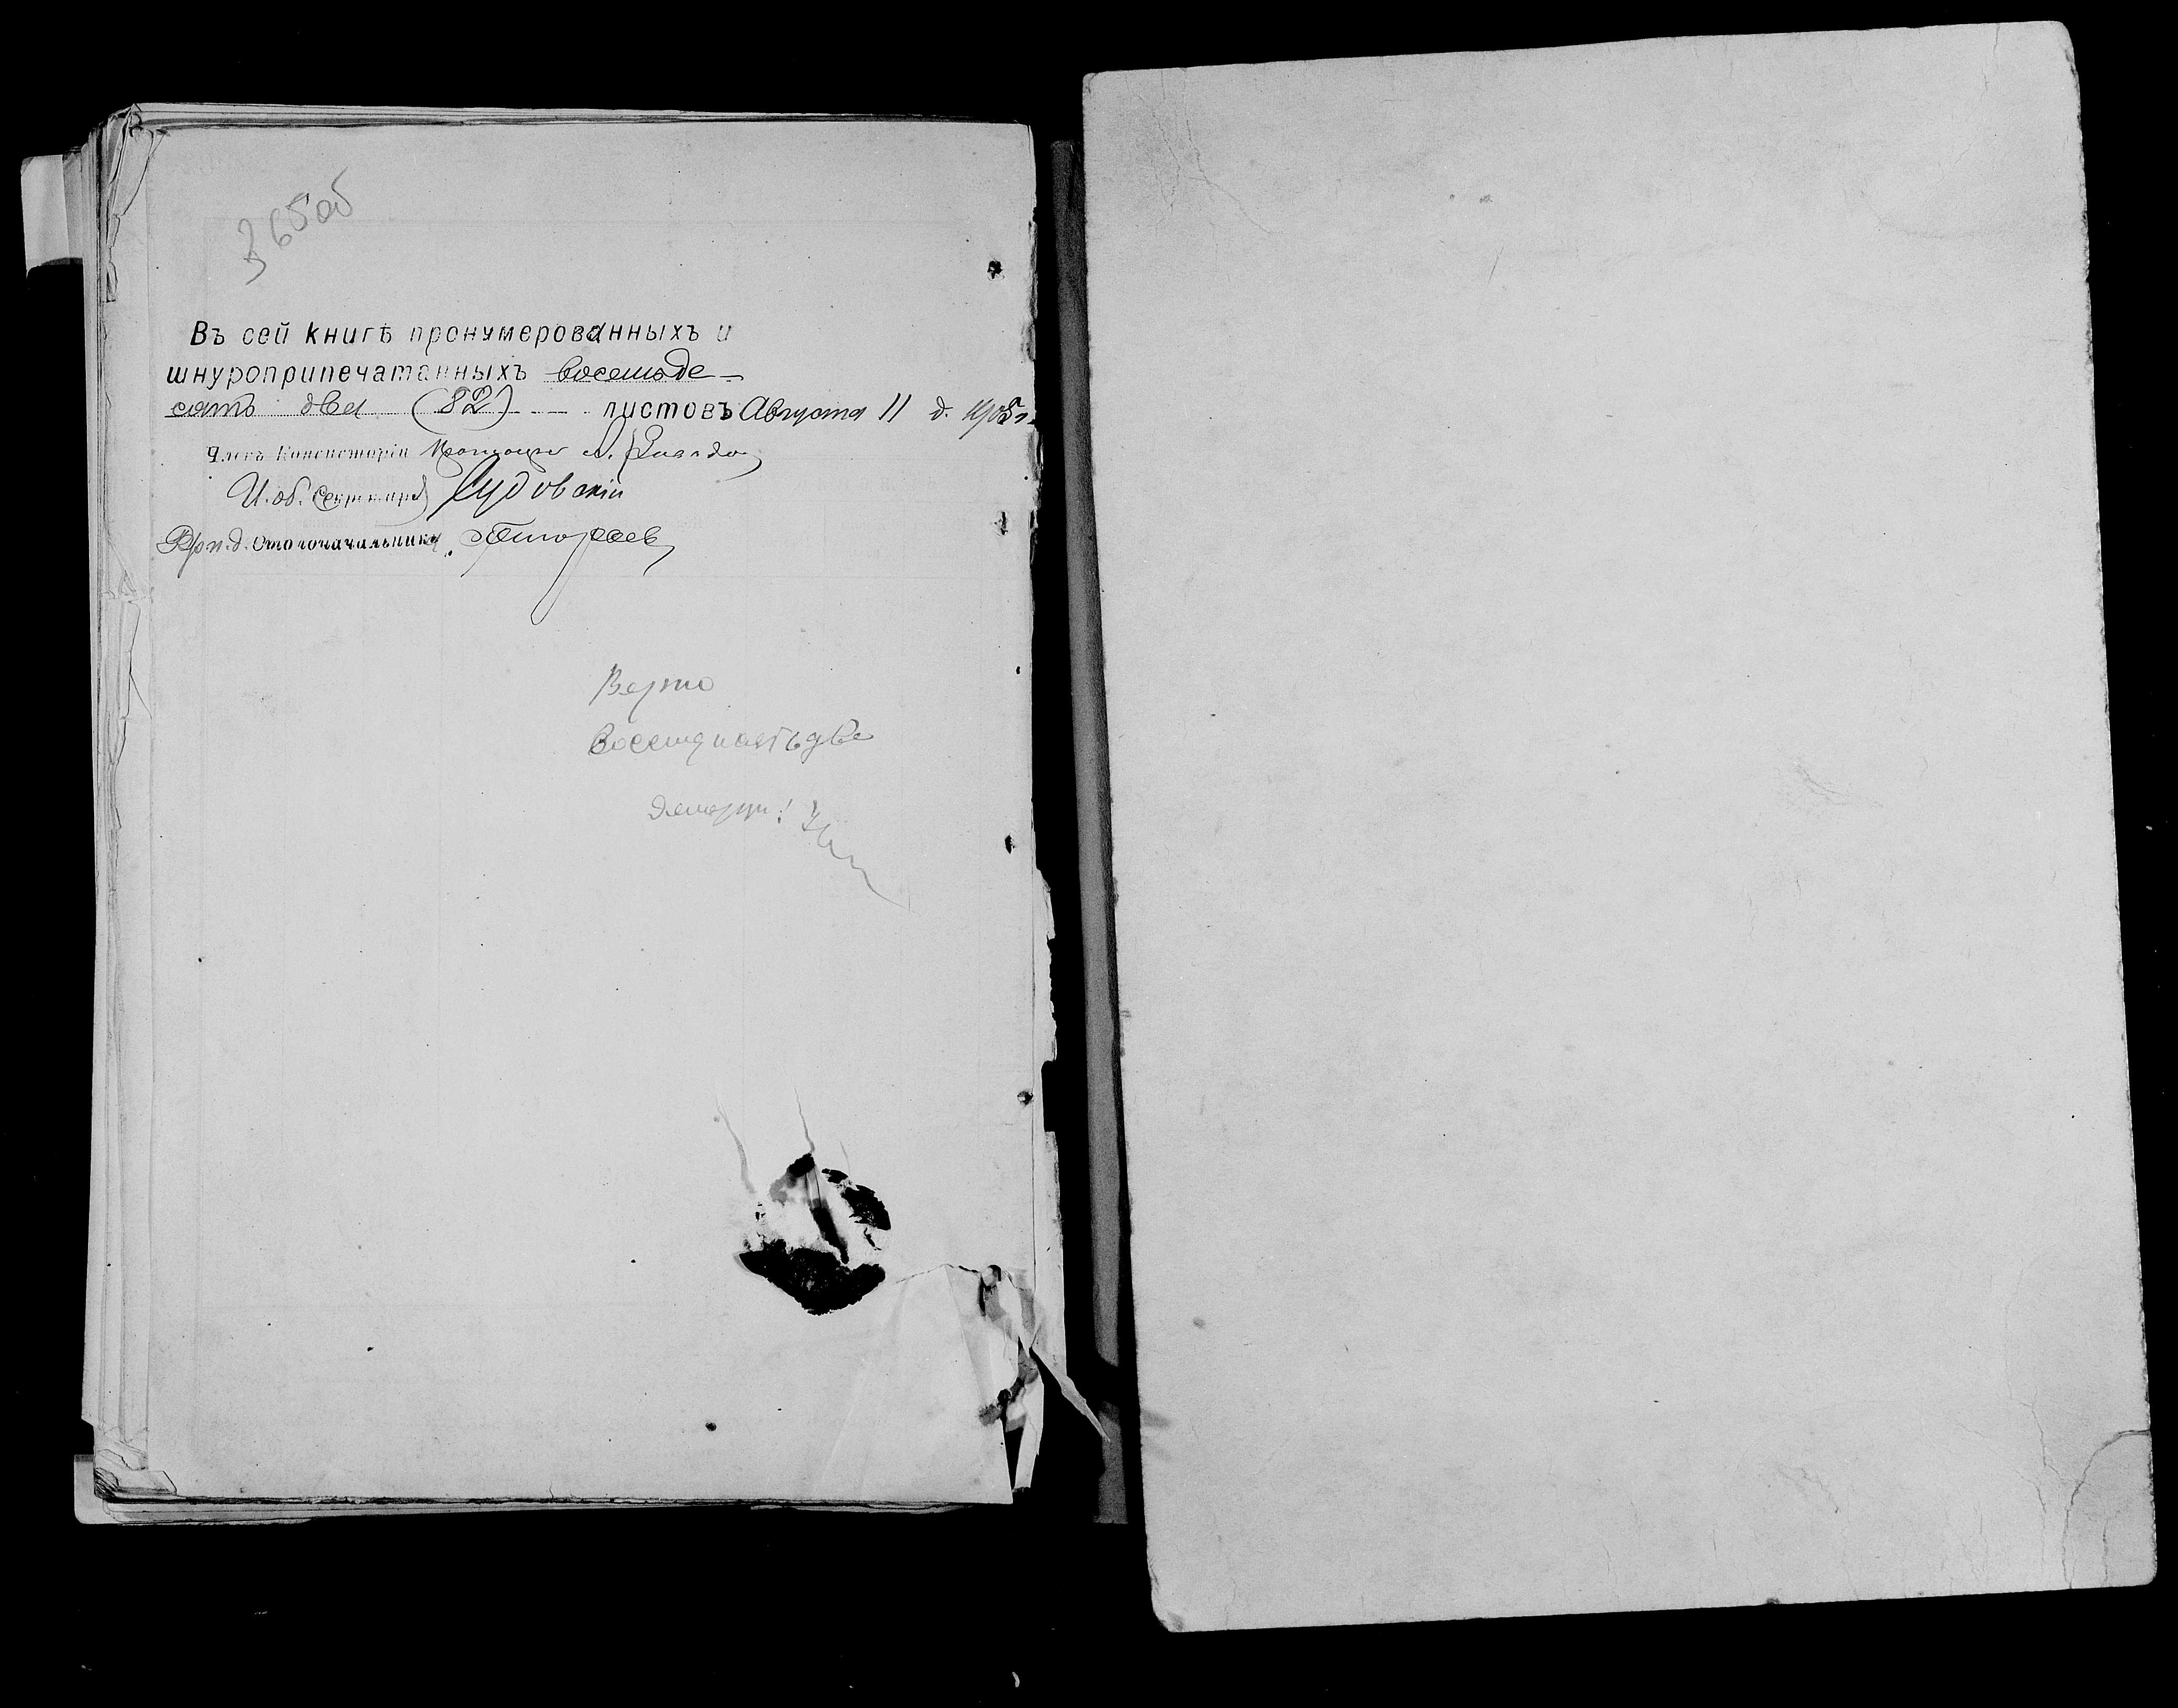 365 об
Въ сей книгѣ пронумерованныхъ и
шнуроприпечатанныхъ восемьде-
сятъ два (82) листовъ Августа 11 д. 1905 г.
Членъ Консисторіи Протоіерей
И. об. Секретаря
Вр. и. д. Столоначальника
Верно
восемдесять две